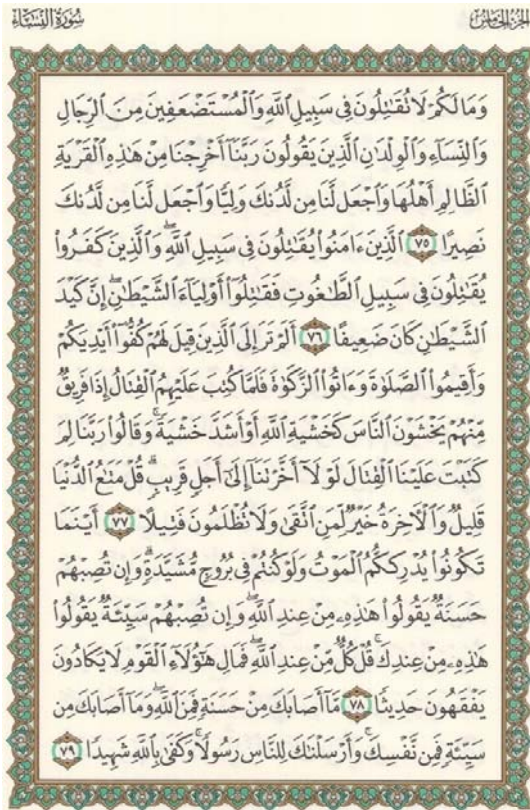 سُورَةُ النِّسَاءِ
الجُزْءُ الخَامِسُ
وَمَا لَكُمْ لَا تُقَٰتِلُونَ فِى سَبِيلِ ٱللَّهِ وَٱلْمُسْتَضْعَفِينَ مِنَ ٱلرِّجَالِ
وَٱلنِّسَآءِ وَٱلْوِلْدَٰنِ ٱلَّذِينَ يَقُولُونَ رَبَّنَآ أَخْرِجْنَا مِنْ هَٰذِهِ ٱلْقَرْيَةِ
ٱلظَّالِمِ أَهْلُهَا وَٱجْعَل لَّنَا مِن لَّدُنكَ وَلِيًّا وَٱجْعَل لَّنَا مِن لَّدُنكَ
نَصِيرًا ٧٥ ٱلَّذِينَ ءَامَنُوا۟ يُقَٰتِلُونَ فِى سَبِيلِ ٱللَّهِ ۖ وَٱلَّذِينَ كَفَرُوا۟
يُقَٰتِلُونَ فِى سَبِيلِ ٱلطَّٰغُوتِ فَقَٰتِلُوٓا۟ أَوْلِيَآءَ ٱلشَّيْطَٰنِ ۖ إِنَّ كَيْدَ
ٱلشَّيْطَٰنِ كَانَ ضَعِيفًا ٧٦ أَلَمْ تَرَ إِلَى ٱلَّذِينَ قِيلَ لَهُمْ كُفُّوٓا۟ أَيْدِيَكُمْ
وَأَقِيمُوا۟ ٱلصَّلَوٰةَ وَءَاتُوا۟ ٱلزَّكَوٰةَ فَلَمَّا كُتِبَ عَلَيْهِمُ ٱلْقِتَالُ إِذَا فَرِيقٌ
مِّنْهُمْ يَخْشَوْنَ ٱلنَّاسَ كَخَشْيَةِ ٱللَّهِ أَوْ أَشَدَّ خَشْيَةً ۚ وَقَالُوا۟ رَبَّنَا لِمَ
كَتَبْتَ عَلَيْنَا ٱلْقِتَالَ لَوْلَآ أَخَّرْتَنَآ إِلَىٰٓ أَجَلٍ قَرِيبٍ ۗ قُلْ مَتَٰعُ ٱلدُّنْيَا
قَلِيلٌ وَٱلْءَاخِرَةُ خَيْرٌ لِّمَنِ ٱتَّقَىٰ وَلَا تُظْلَمُونَ فَتِيلًا ٧٧ أَيْنَمَا
تَكُونُوا۟ يُدْرِككُّمُ ٱلْمَوْتُ وَلَوْ كُنتُمْ فِى بُرُوجٍ مُّشَيَّدَةٍ ۗ وَإِن تُصِبْهُمْ
حَسَنَةٌ يَقُولُوا۟ هَٰذِهِۦ مِنْ عِندِ ٱللَّهِ ۖ وَإِن تُصِبْهُمْ سَيِّئَةٌ يَقُولُوا۟
هَٰذِهِۦ مِنْ عِندِكَ ۚ قُلْ كُلٌّ مِّنْ عِندِ ٱللَّهِ ۖ فَمَالِ هَٰٓؤُلَآءِ ٱلْقَوْمِ لَا يَكَادُونَ
يَفْقَهُونَ حَدِيثًا ٧٨ مَّآ أَصَابَكَ مِنْ حَسَنَةٍ فَمِنَ ٱللَّهِ ۖ وَمَآ أَصَابَكَ مِن
سَيِّئَةٍ فَمِن نَّفْسِكَ ۚ وَأَرْسَلْنَٰكَ لِلنَّاسِ رَسُولًا ۚ وَكَفَىٰ بِٱللَّهِ شَهِيدًا ٧٩